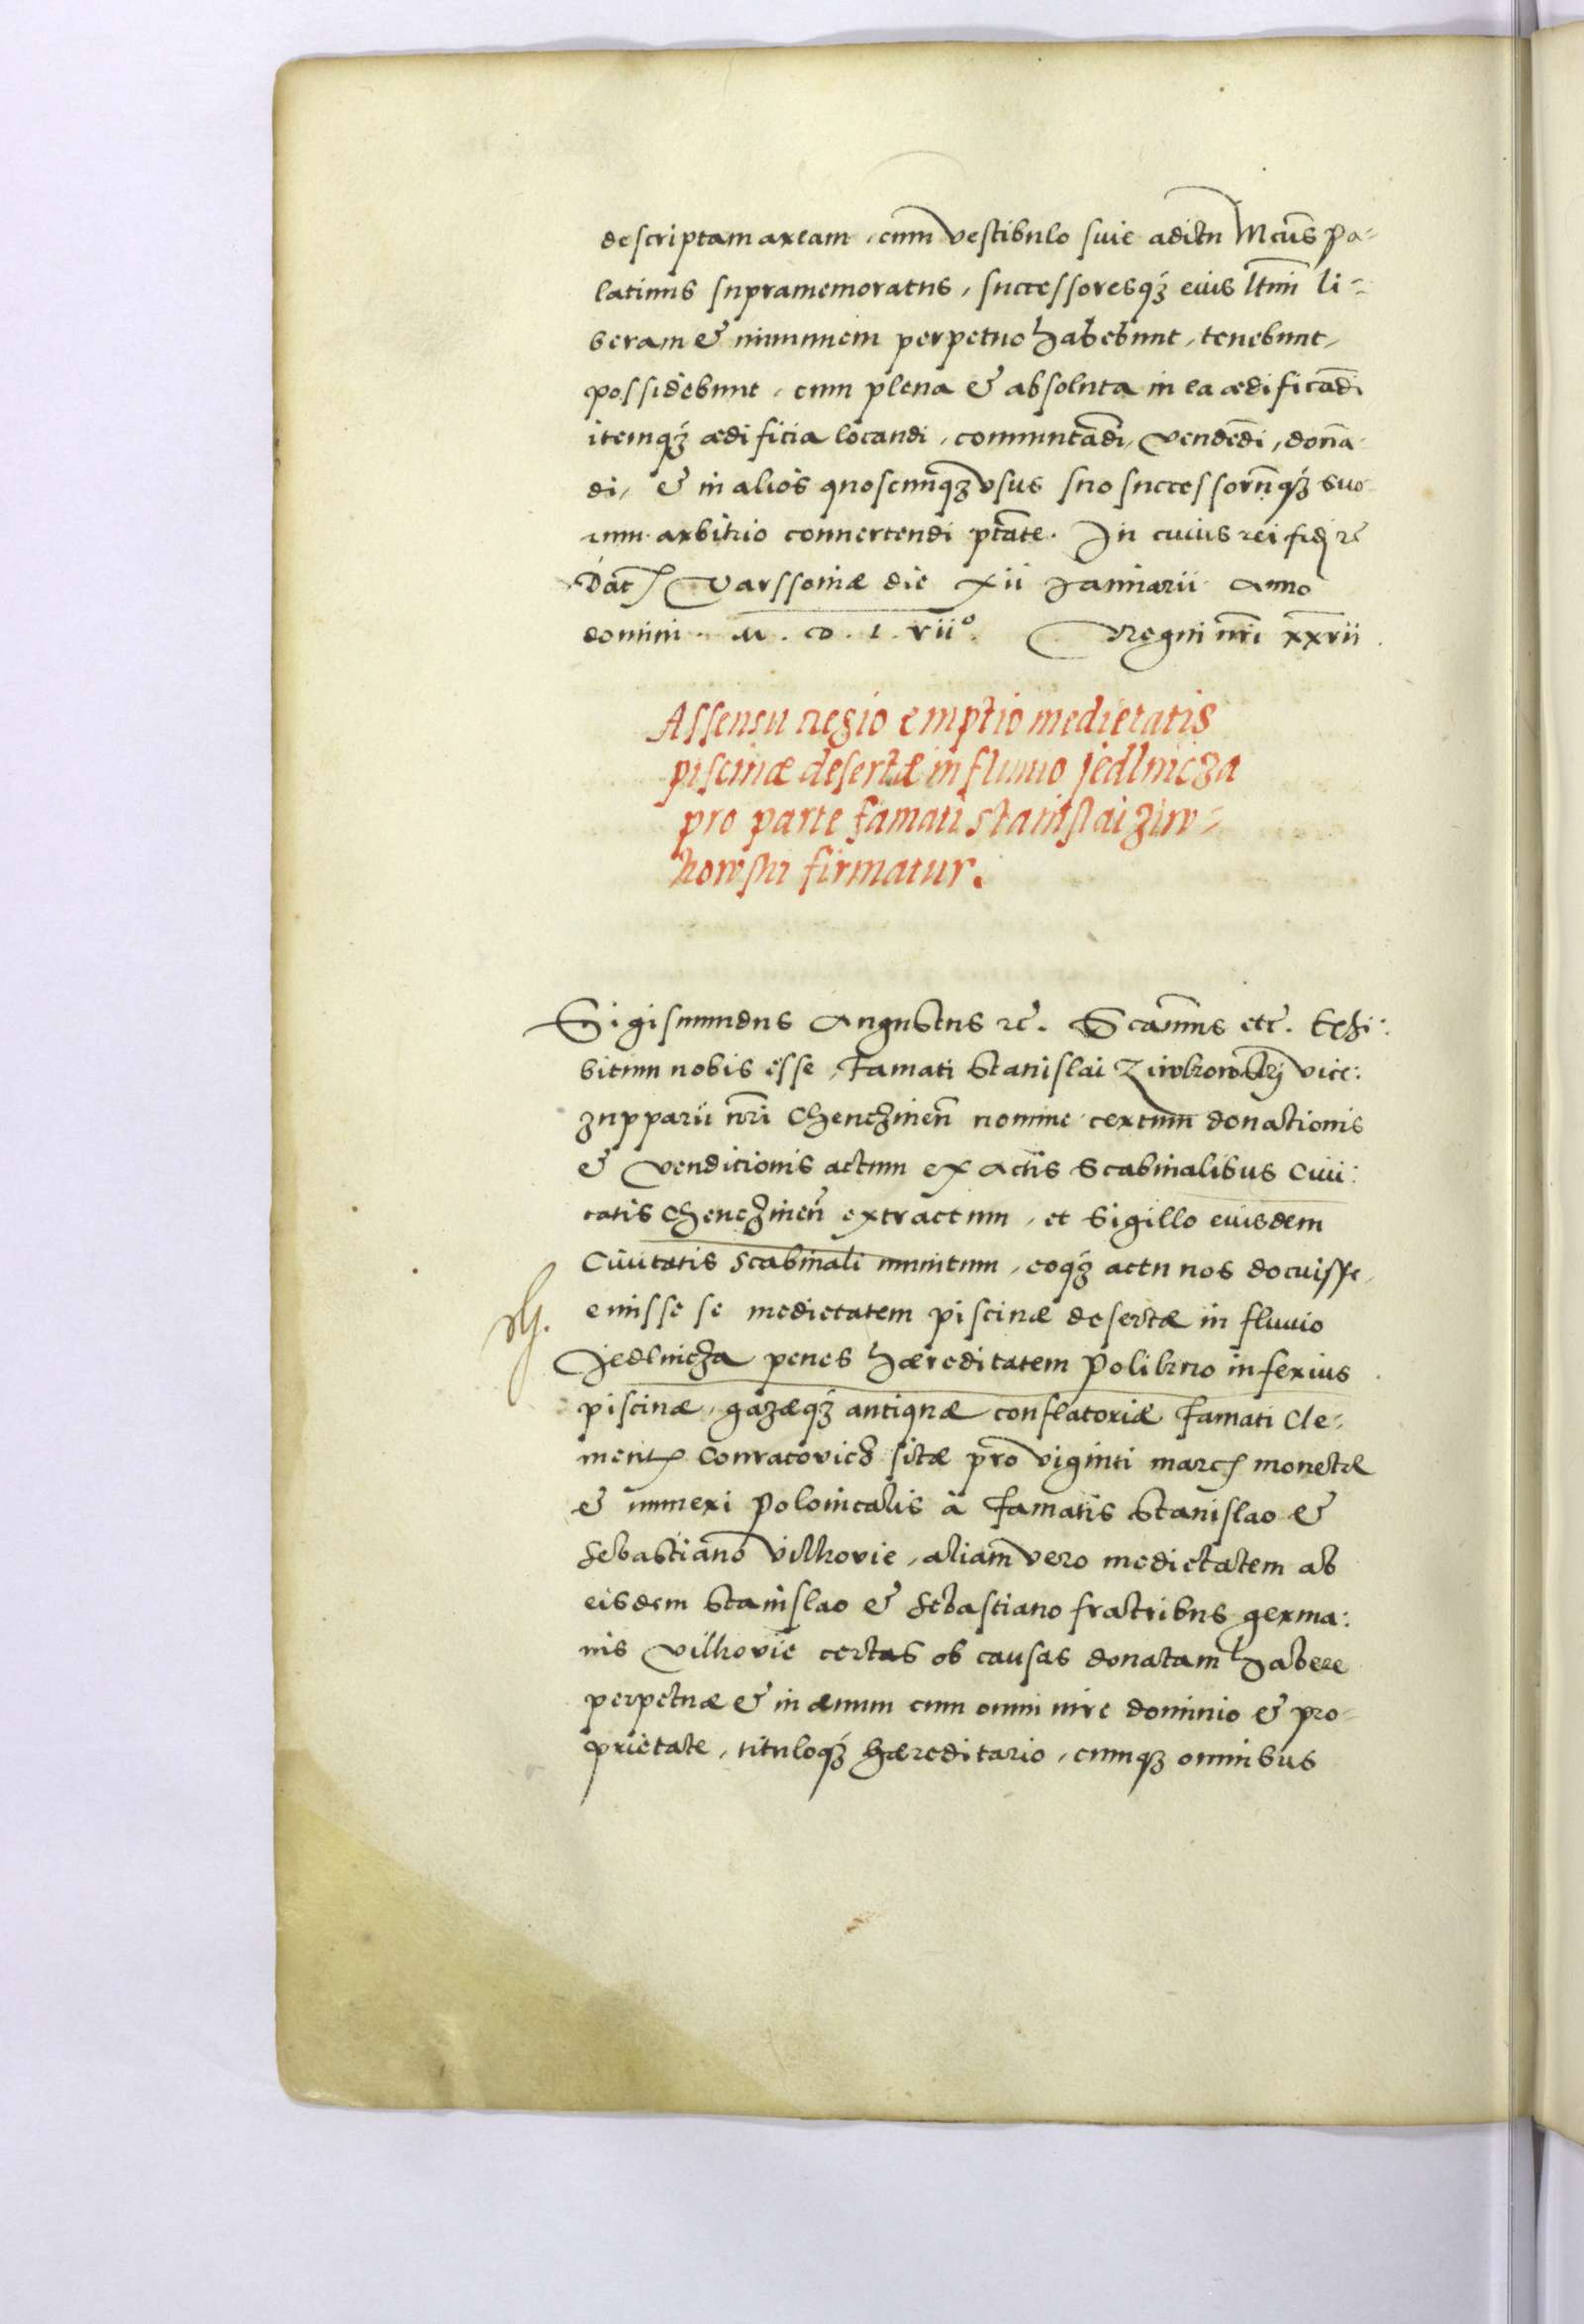 descriptam aream, cum vestibulo sive aditu Mcus Pa-
latinus supramemoratus, successoresq̃ʒ eius ltimi li-
beram & immunem perpetuo habebunt, tenebunt,
possidebunt, cum plena & absoluta in ea ædificãdi
itemq̃ʒ ædificia locandi, commutãdi, vendẽdi, donã-
di, & in alios quoscunqʒ usus suo successorũqʒ suo-
rum arbitrio convertendi ptãte. In cuius rei fidẽ rc̃
Dat Varssoviæ die xii Januarii Anno
domini M. D. L vii°. Regni nr̃i xxvii
Assensu regio emptio medietatis
piscinæ desertæ in fluvio Jedlnicza
pro parte famati Stanislai Ziw-
kowski firmatur.
Sigismundus Augustus rc̃. Scamus etc̃. Exhi-
bitum nobis esse, famati Stanislai Ziwkowskij vice-
zupparii nr̃i Chenczineñ nomine certum donationis
& venditionis actum ex Actis Scabinalibus Civi-
tatis Chenczineñ extractum, et Sigillo eiusdem
Civitatis Scabinali munitum, eoqʒ actu nos docuisse,
emisse se medietatem piscinæ desertæ in fluvio
Jedlnicza penes hæreditatem Polikno inferius
piscinæ, gazæqʒ antiquæ conflatoriæ famati Cle-
ment Conratovicz sitæ pro viginti marc monetæ
& numeri Polonicalis à famatis Stanislao &
Sebastiano Vilkovie, aliam vero medietatem ab
eisdem Stanislao & Sebastiano fratribus germa-
nis Vilkovie certas ob causas donatam habere
perpetuæ & in ævum cum omni iure dominio & pro-
prietate, tituloqʒ hæreditario, cumqʒ omnibus